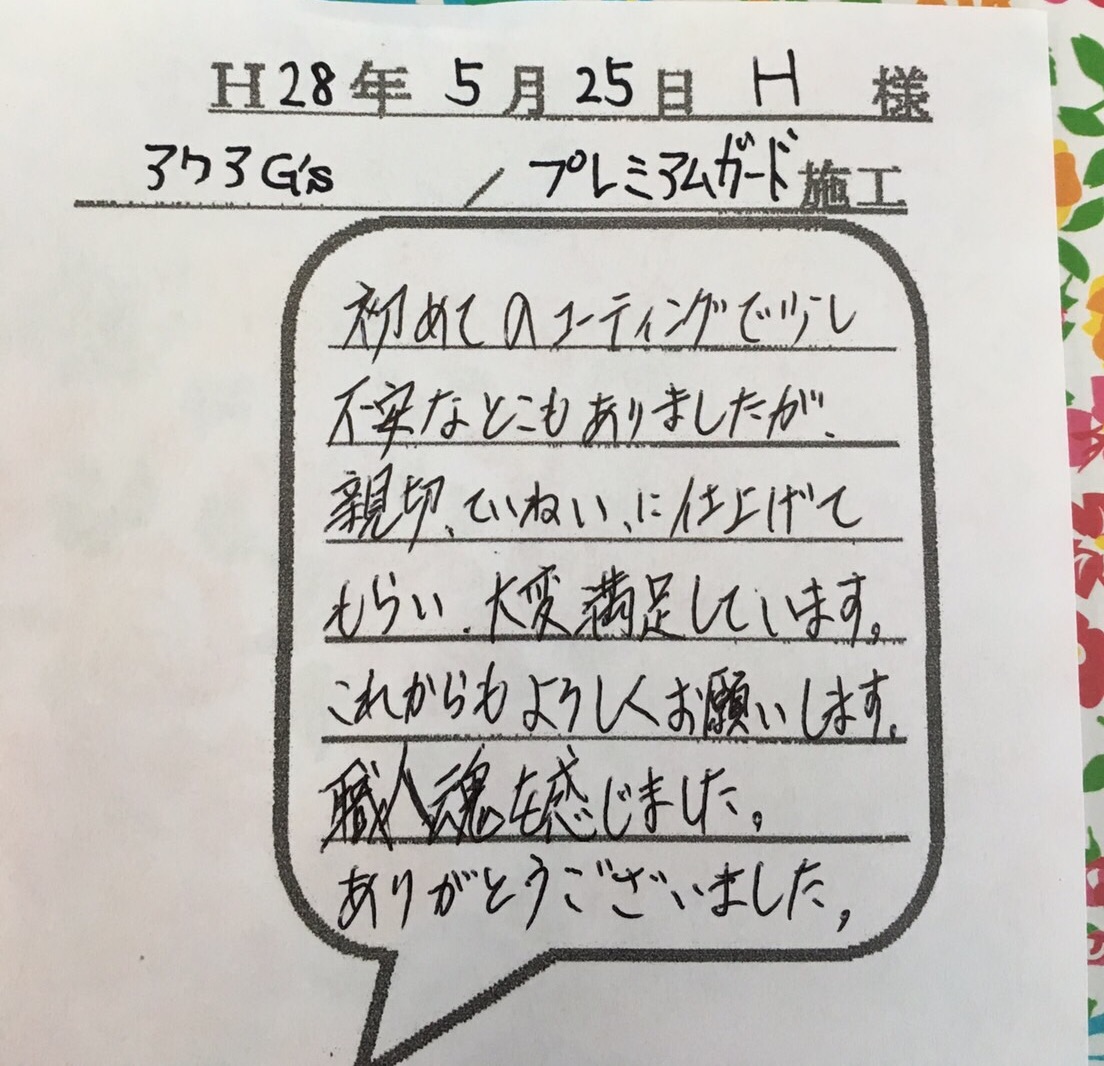 H28年 5月25日 H 様
アクアG's / プレミアムガード施工
初めてのコーティングで少し
不安なとこもありましたが、
親切、ていねい、に仕上げて
もらい、大変満足しています。
これからもよろしくお願いします。
職人魂を感じました。
ありがとうございました。